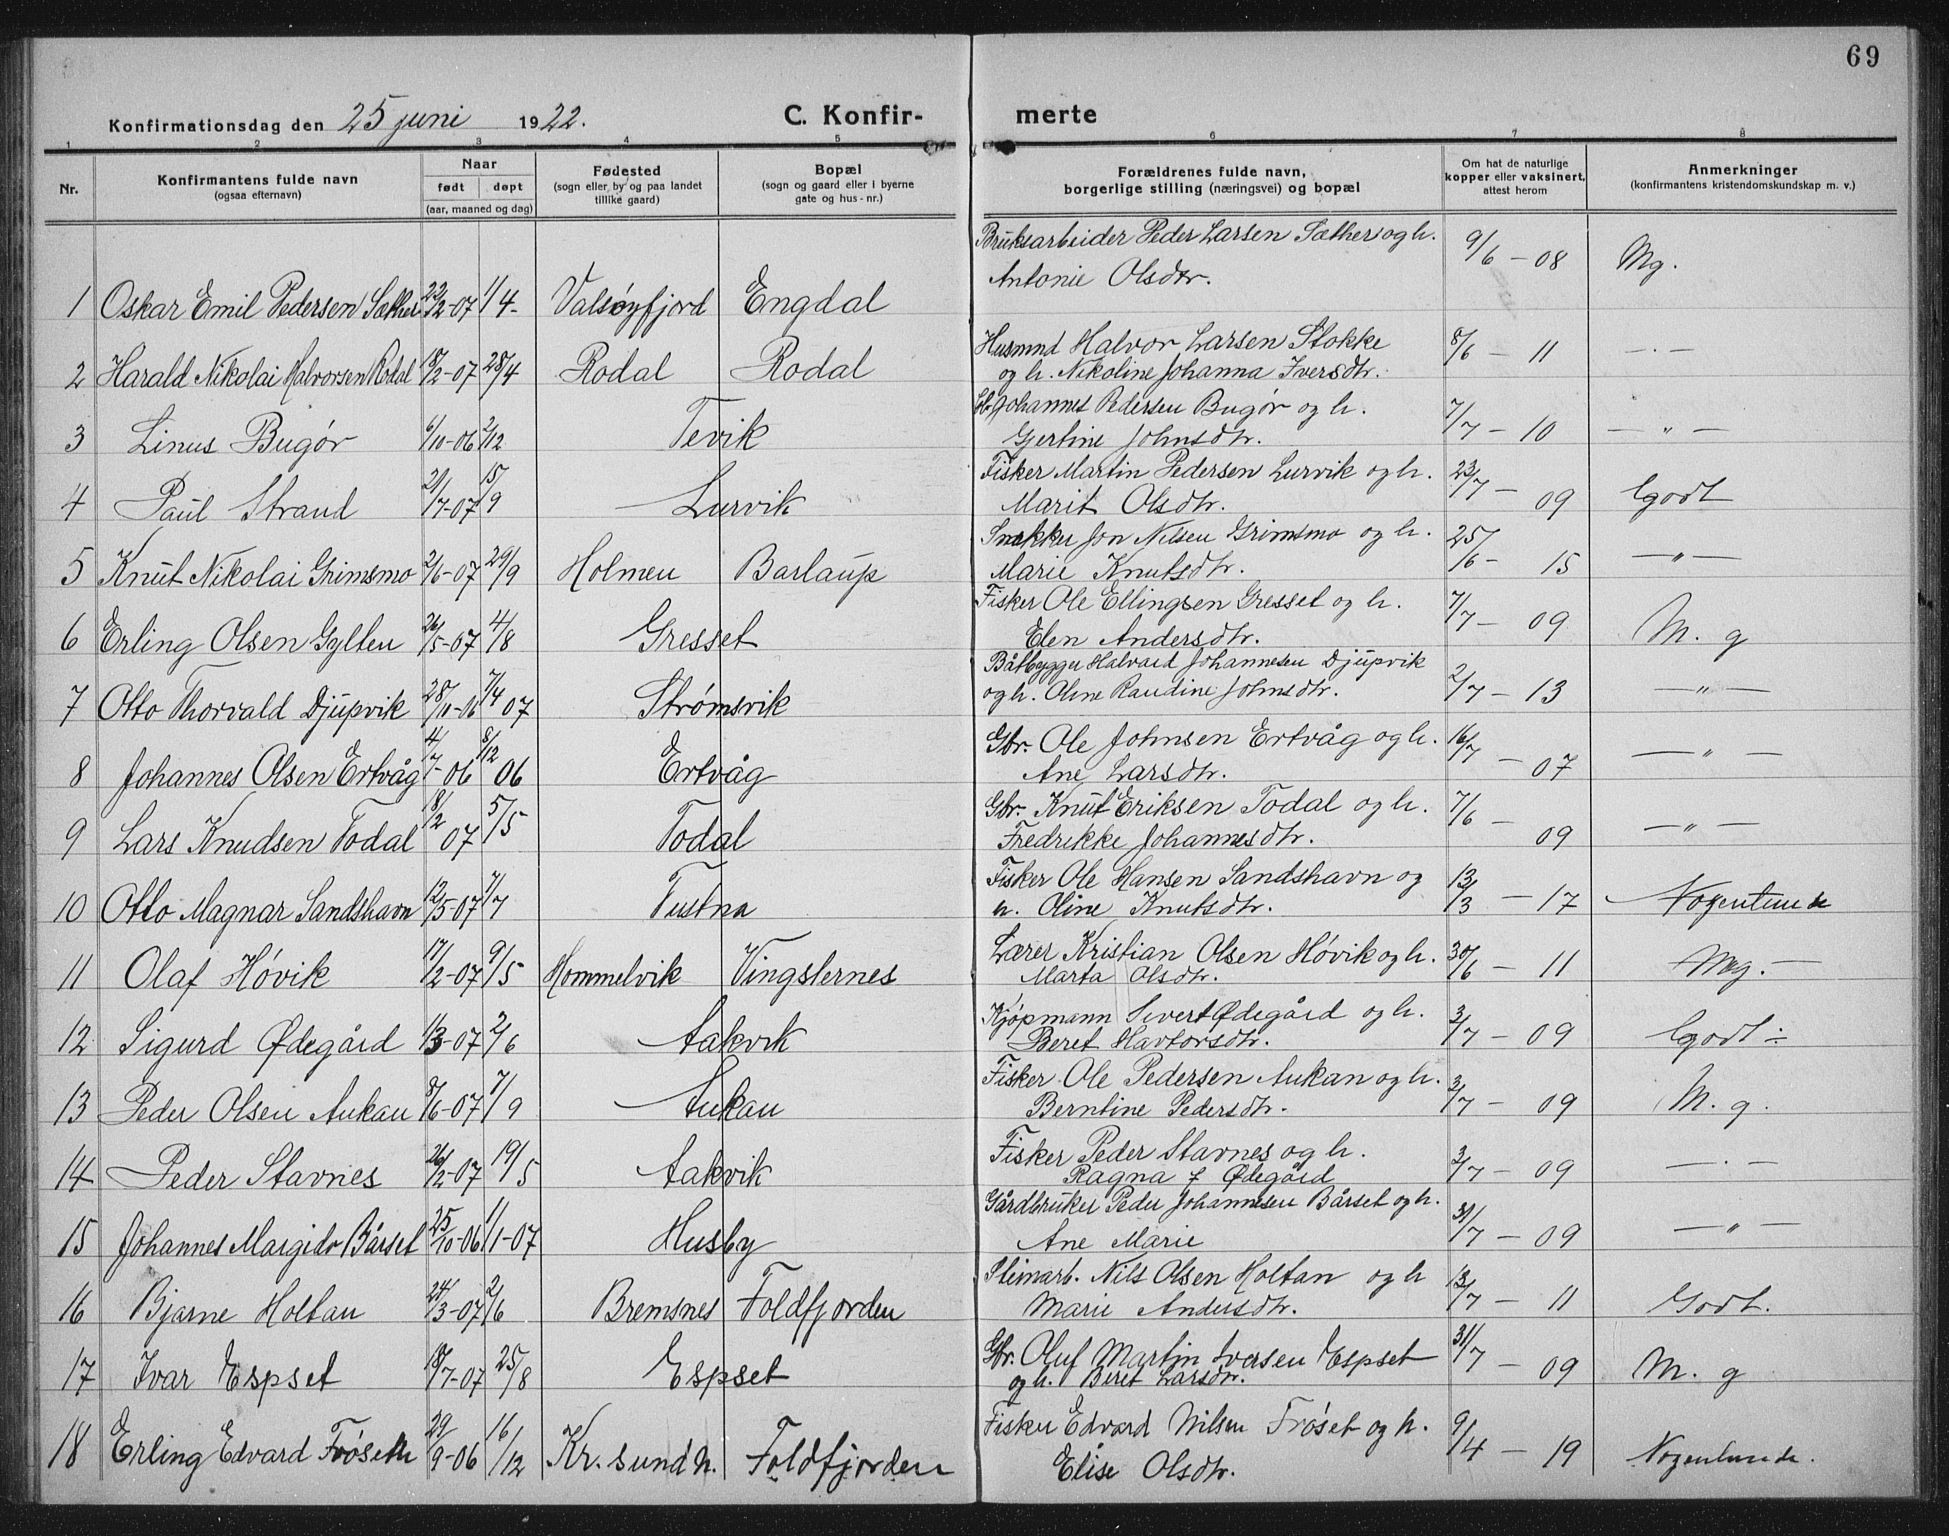 69
Konfirmationsdag den 25 juni 1922. C. Konfir- merte
1 2 3 4 5 6 7 8
Nr. Konfirmantens fulde navn (ogsaa efternavn) Naar født døpt (aar, maaned og dag) Fødested (sogn eller by og paa landet tillike gaard) Bopæl (sogn og gaard eller i byerne gate og hus-nr.) Forældrenes fulde navn, borgerlige stilling (næringsvei) og bopæl Om hat de naturlige kopper eller vaksinert, attest herom Anmerkninger (konfirmantens kristendomskundskap m. v.)
1 Oskar Emil Pedersen Sæther 22/2-07 1/4- Valsøyfjord Engdal Bruksarbeider Peder Larsen Sæther og h. Antonie Olsdtr. 9/6 - 08 Mg.
2 Harald Nikolai Halvorsen Rodal 18/2-07 28/4 Rodal Rodal Husmnd Halvor Larsen Stokke og h. Nikoline Johanna Iversdtr. 8/6 - 11 - . -
3 Linus Bugør 6/10-06 2/12 Tevik Johannes Pedersen Bugør og h. Gertine Johnsdtr. 7/7 - 10 - " -
4 Paul Strand 21/7-07 15/9 Lurvik Fisker Martin Pedersen Lurvik og h. Marit Olsdtr. 23/7 - 09 Godt
5 Knut Nikolai Grimsmo 2/6-07 29/9 Holmen Barlaup Snekker Jon Nilsen Grimsmo og h. Marie Knutsdtr. 25/6 - 15 - " -
6 Erling Olsen Gylten 26/5-07 4/8 Gresset Fisker Ole Ellingsen Gresset og h. Elen Andersdtr. 7/7 - 09 M. g
7 Otto Thorvald Djupvik 28/11-06 7/4 07 Strømsvik Båtbygger Halvard Johannesen Djupvik og h. Oline Randine Johnsdtr. 2/7 - 13 - " -
8 Johannes Olsen Ertvåg 4/7-06 8/12 06 Ertvåg Gbr. Ole Johnsen Ertvåg og h. Ane Larsdtr. 16/7 - 07 - " -
9 Lars Knudsen Todal 18/2 07 5/5 Todal Gbr. Knut Eriksen Todal og h. Fredrikke Johannesdtr. 7/6 - 09 - " -
10 Otto Magnar Sandshavn 12/5-07 7/7 Tustna Fisker Ole Hansen Sandshavn og h. Oline Knutsdtr. 13/3 - 17 Nogenlunde
11 Olaf Høvik 17/2-07 9/5 Hommelvik Vingsternes Lærer Kristian Olsen Høvik og h. Marta Olsdtr. 30/6 - 11 Mg. -
12 Sigurd Ødegård 1/3-07 2/6 Aakvik Kjøpmann Sivert Ødegård og h. Beret Havtorsdtr. 3/7 - 09 Godt ÷
13 Peder Olsen Aukan 8/6-07 7/9 Aukan Fisker Ole Pedersen Aukan og h. Berntine Pedersdtr. 3/7 - 09 M. g.
14 Peder Stavnes 26/2-07 19/5 Aakvik Fisker Peder Stavnes og h. Ragna f Ødegård 3/7 - 09 - . -
15 Johannes Margido Bårset 25/10-06 1/1-07 Husby Gårdbruker Peder Johannesen Bårset og h. Ane Marie 31/7 - 09 - " -
16 Bjarne Holtan 24/3-07 2/6 Bremsnes Foldfjorden Nils Olsen Holtan og h Marie Andersdtr. 13/7 - 11 Godt.
17 Ivar Espset 18/7-07 25/8 Espset Gbr. Oluf Martin Iversen Espset og h. Beret Larsdtr. 31/7 - 09 M. g
18 Erling Edvard Frøseth 29/9-06 16/12 Kr.sund N. Foldfjorden Fisker Edvard Nilsen Frøset og h. Elise Olsdtr. 9/4 - 19 Nogenlunde.